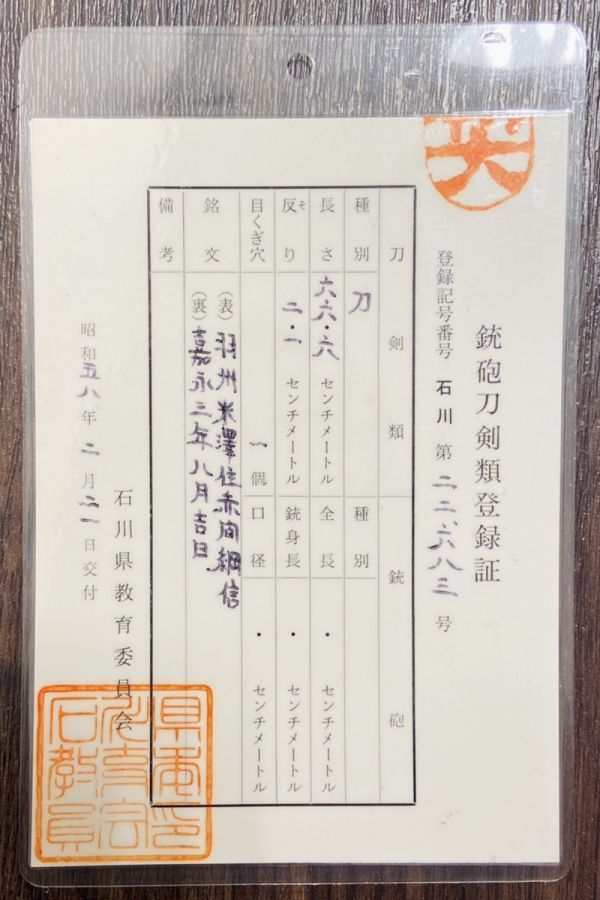 銃砲刀剣類登録証
登録記号番号 石川 第 二二、六八三 号
刀剣類
種別 刀
長さ 六六・六 センチメートル
反り 二・一 センチメートル
そ
目くぎ穴 一個
銘文 (表)羽州米澤住赤間綱信
(裏)嘉永三年八月吉日
備考
銃砲
種別
全長 ・ センチメートル
銃身長 ・ センチメートル
口径 ・ センチメートル
昭和五八年二月二一日交付
石川県教育委員会